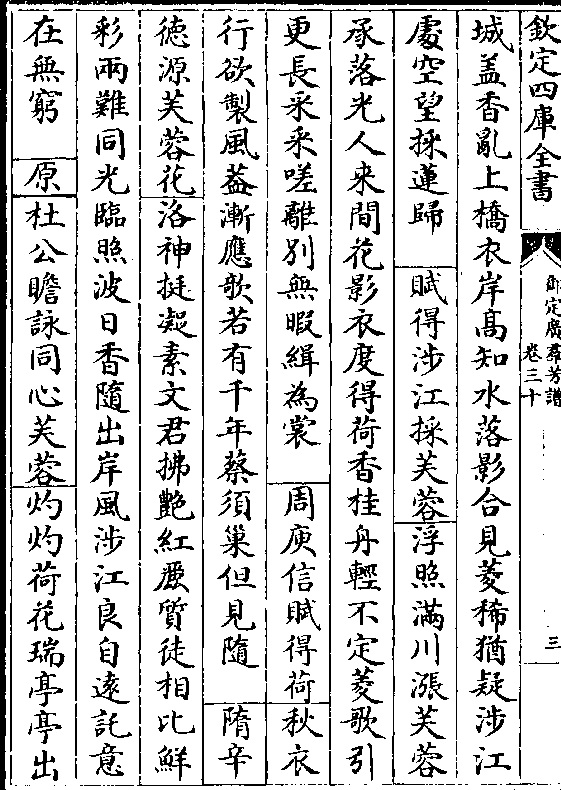 欽定四庫全書
御定廣羣芳譜
卷三十
三
城盖香亂上橋衣岸髙知水落影合見菱稀猶疑渉江
處空望採蓮歸　賦得渉江採芙蓉浮照滿川漲芙蓉
承落光人来間花影衣度得荷香桂舟輕不定菱歌引
更長采采嗟離别無暇緝為裳　周庾信賦得荷秋衣
行欲製風葢漸應歌若有千年蔡須巢但見隨　隋辛
徳源芙蓉花洛神挺凝素文君拂艶紅麗質徒相比鮮
彩兩難同光臨照波日香隨出岸風渉江良自逺託意
在無窮　原杜公瞻詠同心芙蓉灼灼荷花瑞亭亭出